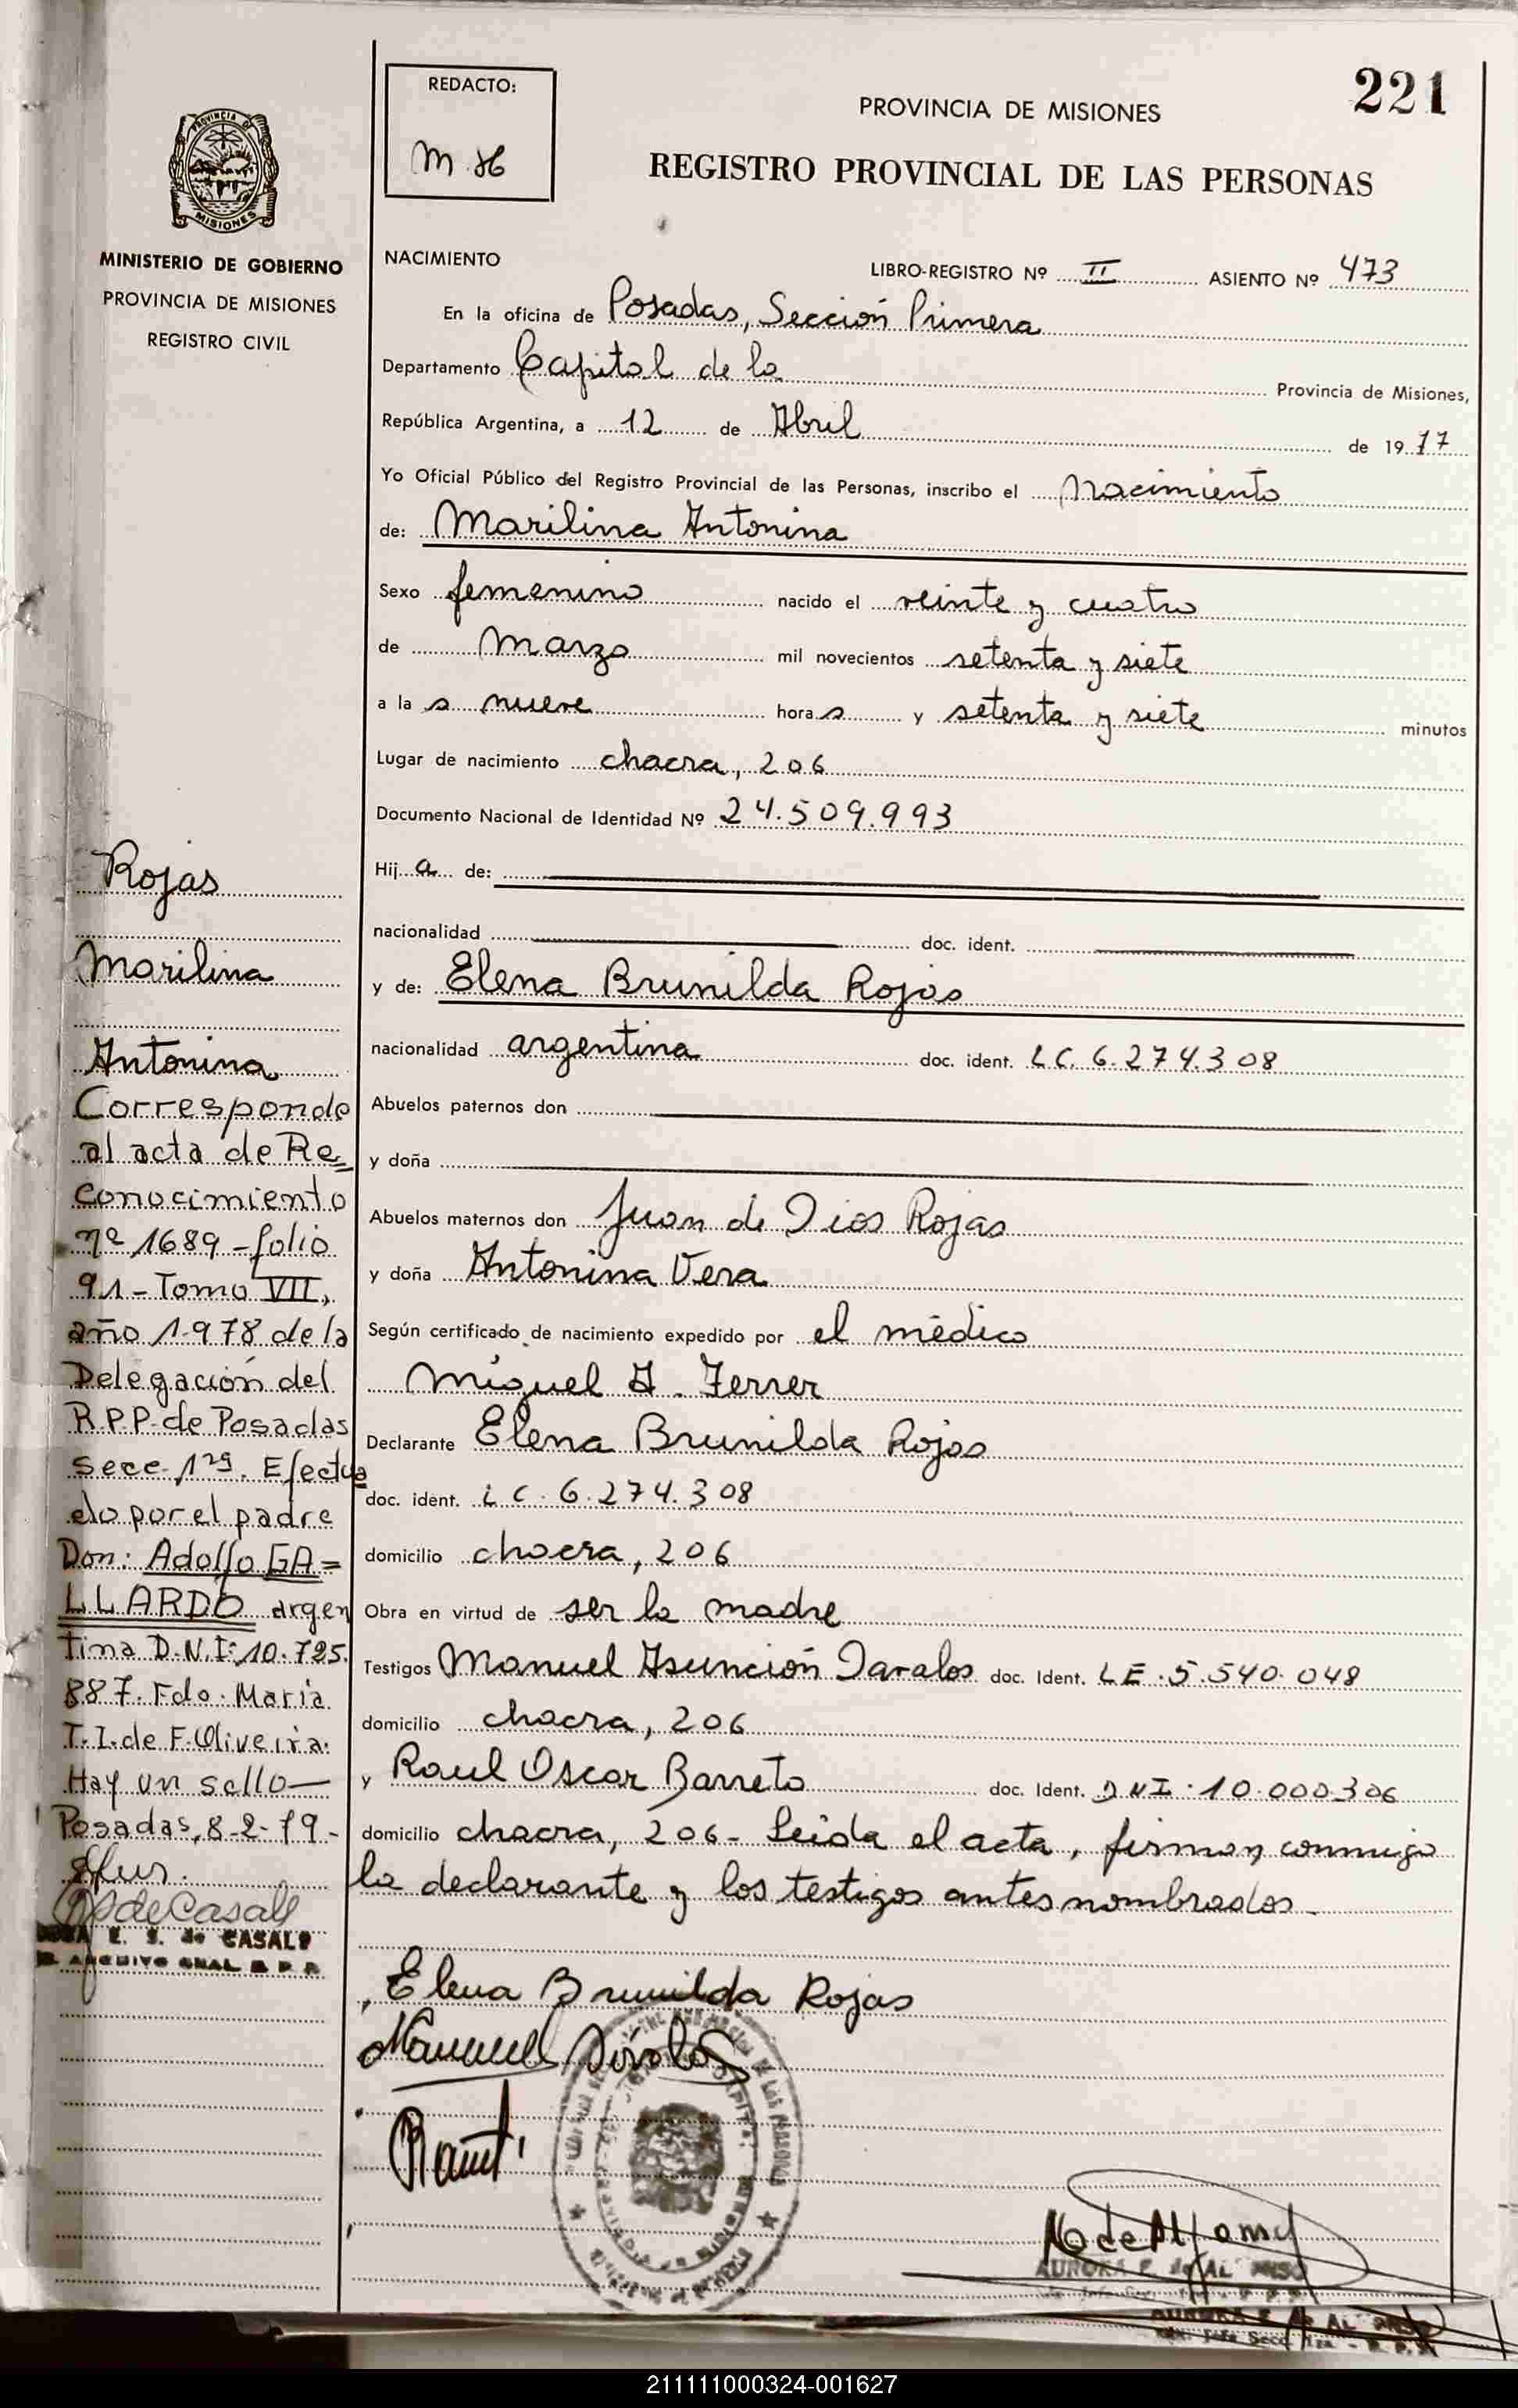 221
REDACTO:
M.H
PROVINCIA DE MISIONES
REGISTRO PROVINCIAL DE LAS PERSONAS
PROVINCIA DE
MISIONES
MINISTERIO DE GOBIERNO
PROVINCIA DE MISIONES
REGISTRO CIVIL
NACIMIENTO
LIBRO-REGISTRO Nº II ASIENTO Nº 473
En la oficina de Posadas, Sección Primera
Departamento Capital de la Provincia de Misiones,
República Argentina, a 12 de Abril de 1977
Yo Oficial Público del Registro Provincial de las Personas, inscribo el Nacimiento
de: Marilina Antonina
Sexo femenino nacido el veinte y cuatro
de Marzo mil novecientos setenta y siete
a la s nueve hora s y setenta y siete minutos
Lugar de nacimiento chacra, 206
Documento Nacional de Identidad Nº 24.509.993
Hij a de:
nacionalidad doc. ident.
y de: Elena Brunilda Rojas
nacionalidad argentina doc. ident. LC. 6.274.308
Abuelos paternos don
y doña
Abuelos maternos don Juan de Dios Rojas
y doña Antonina Vera
Según certificado de nacimiento expedido por el médico
Miguel A. Ferrer
Declarante Elena Brunilda Rojas
doc. ident. LC. 6.274.308
domicilio chacra, 206
Obra en virtud de ser la madre
Testigos Manuel Asunción Davalos doc. Ident. LE.5.540.048
domicilio chacra, 206
y Raul Oscar Barreto doc. Ident. DNI:10.000306
domicilio chacra, 206- Leida el acta, firman conmigo
la declarante y los testigos antes nombrados.
Elena Brunilda Rojas
Rojas
Marilina
Antonina
Corresponde
al acta de Re=
conocimiento
nº 1689-folio
91-Tomo VII,
año 1.978 de la
Delegación del
R.P.P. de Posadas
Secc. 1ra. Efectua
do por el padre
Don: Adolfo GA=
LLARDO argen
tina D.N.I:10.725.
887. Fdo. Maria
T.I. de F. Oliveira.
Hay un sello-
Posadas, 8-2-79-
de Casals
E. S. de CASALS
ARCHIVO GRAL R P P
Manuel Dávalos
AURORA E. de AL
211111000324-001627